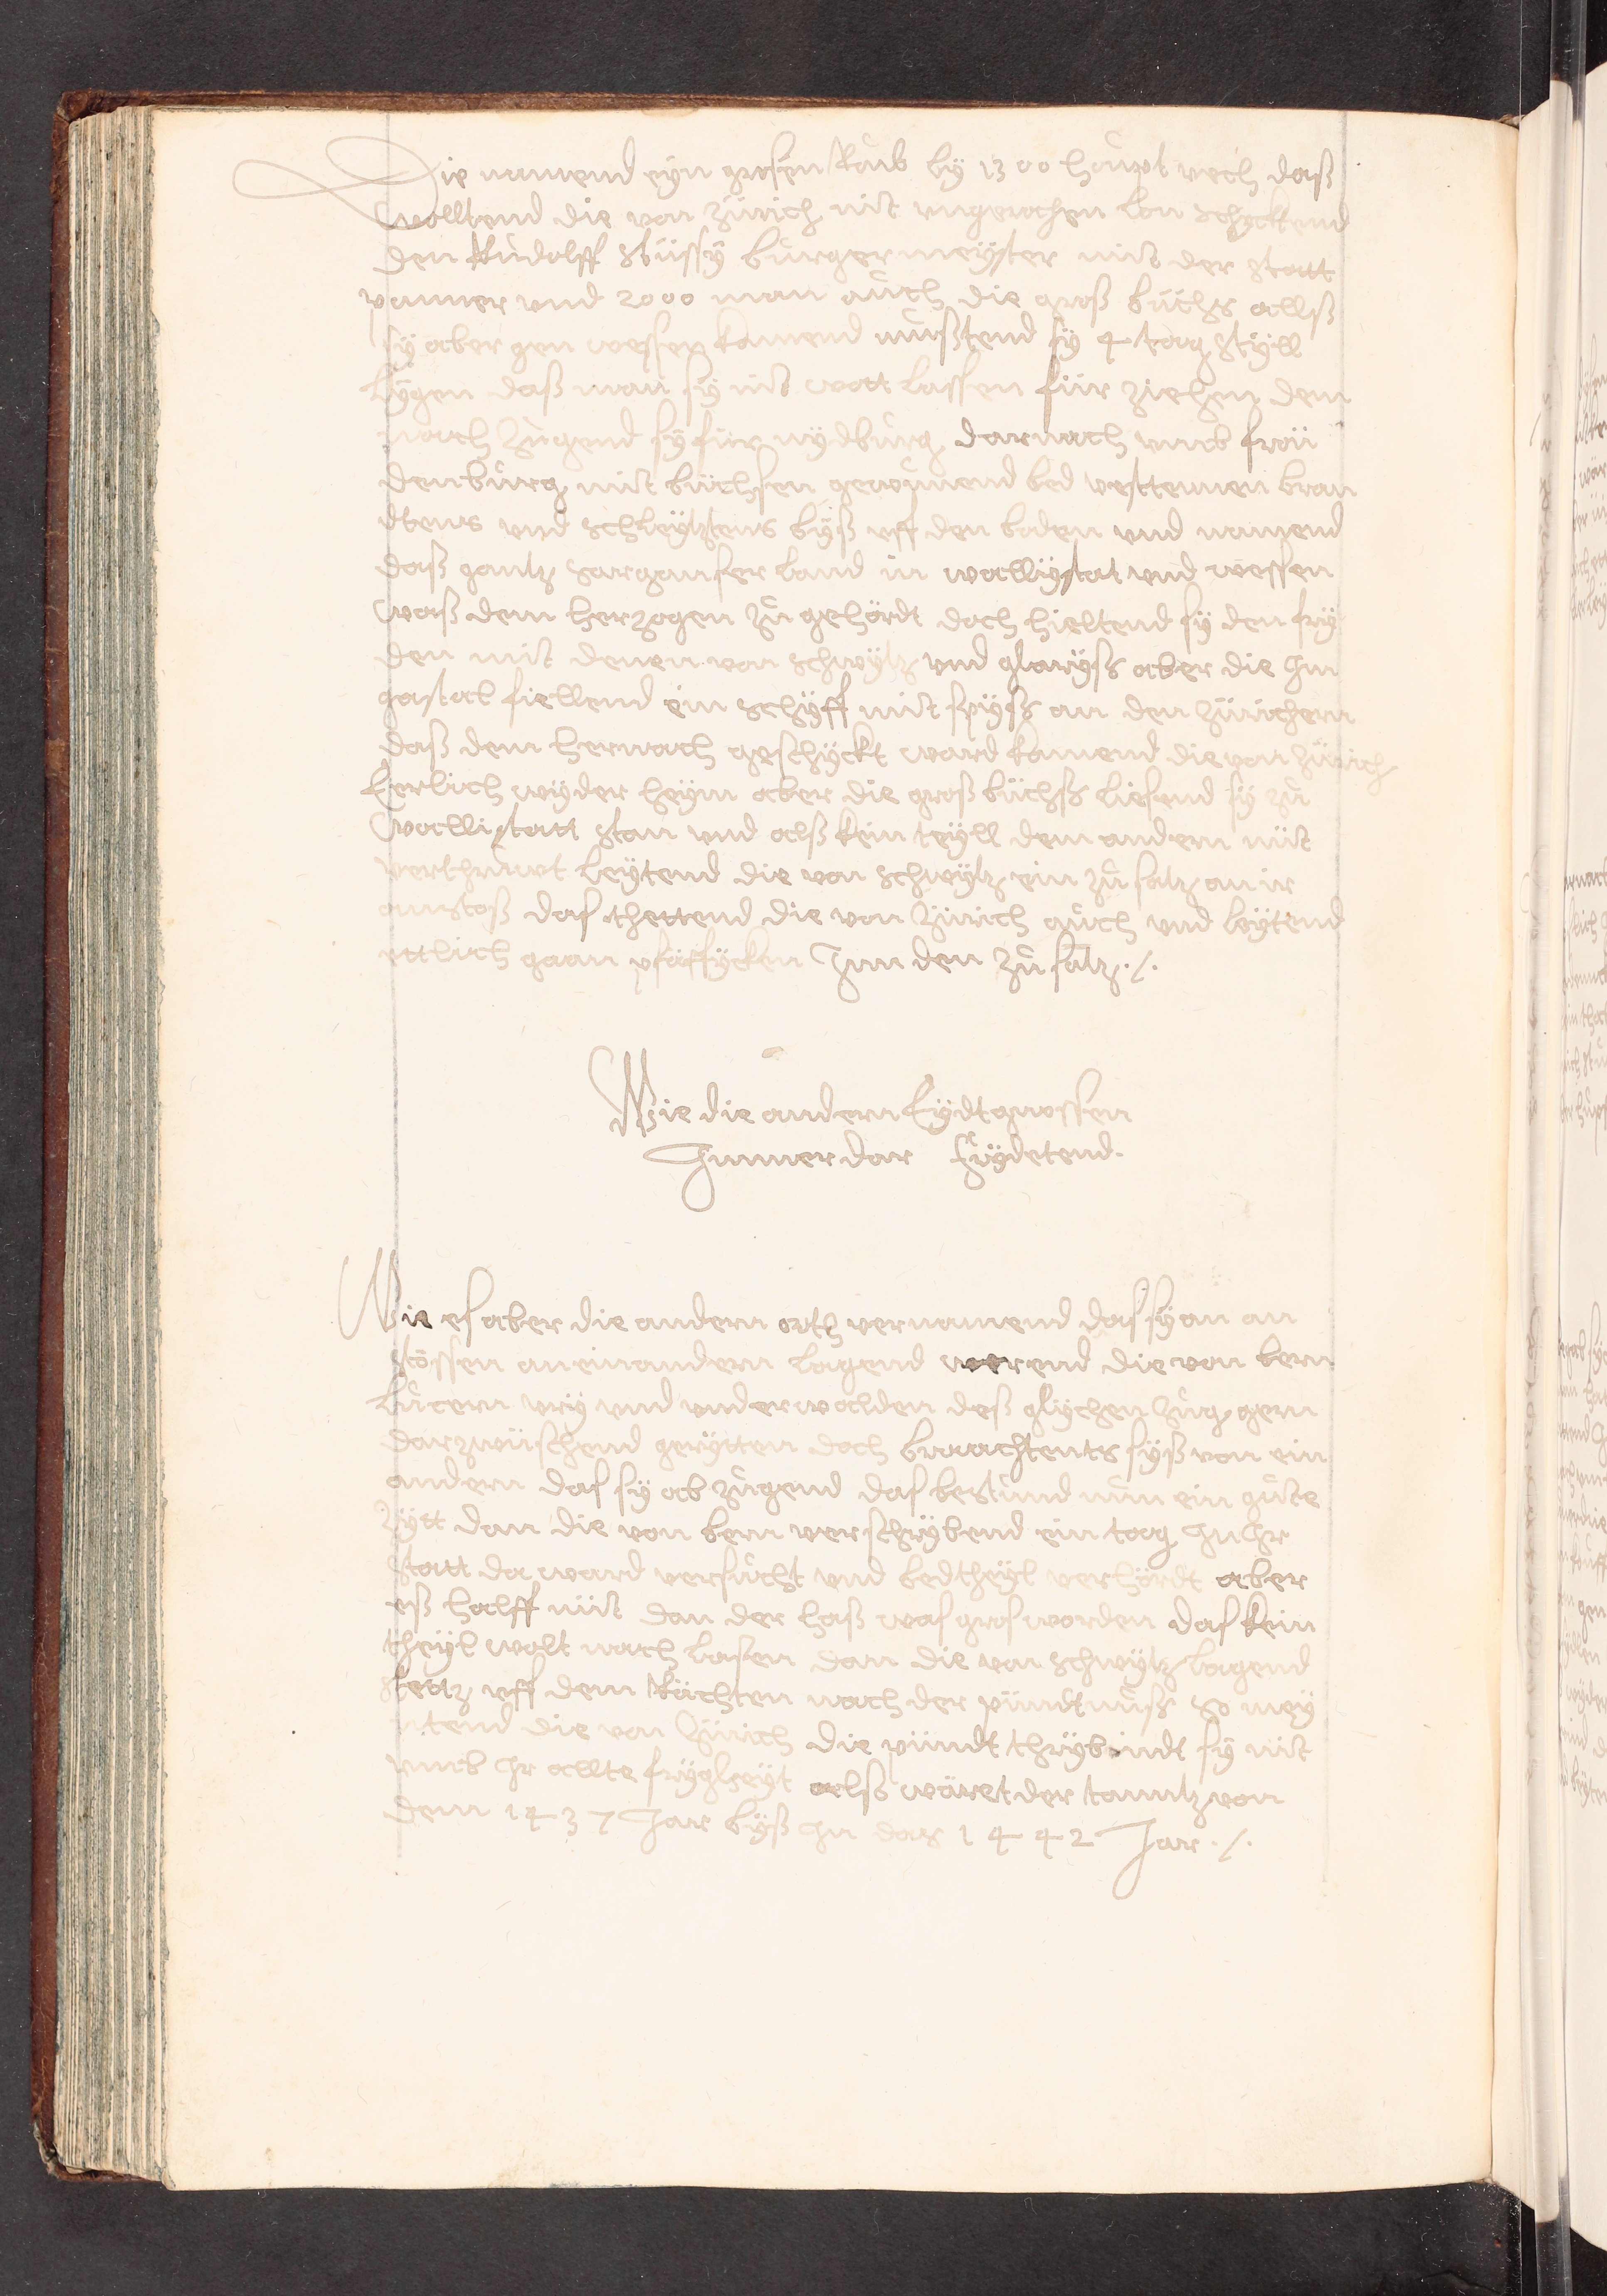 Die namend eyn grosen Raub by 1300 haupt vech daß
Wolltend die von Zürich nit ungerochen lon schycktend
den Rudolff Stüssy burgermeyster mit der statt
vanner vnd 2000 man auch die groß büchs allß
sy aber gen wessen kamend mußtend sy 4 tag styll
lygen daß man sy nit wott lassen für ziehen dem
nach zugend sy für nydburg darnach vmb fröü
denburg mit büchsen gewunend bed vesttennen bran
dtens vnd schleytztens byß vff den boden vnd namend
daß gantz sarganser land in wallystat vnd wessen
waß dem herzogen zu gehördt doch hieltend sy den fry
den mit denen von schwytz vnd glaryß aber die Im
gastal fiellend ein schyff mit spyß an den zürichern
daß dem hernach geschyckt ward kamend die von zürich
Eerlich wyder heym aber die groß büchß liesend sy zu
Wallistatt stan vnd alß kein teyll dem andern nüt
verthruwt leytend die von schwytz ein zu satz an ir
anstoß das thettend die von Zürich auch vnd leytend
ettlich gaan pfäffycken Inn den zu satz ./.
Wie die andern Eydtgnossen
Immer dar frydetend.
Wie es aber die andern orth vernamend das sy an an
stössen an einandern lagend werend die von bern
Lucern vry vnd vnderwalden deß glychen zug gern
darzwüschend gerytten doch brachtents syß von ein
andern das sy ab zugend das bestund nun ein gute
zytt dan die von bern verschrybend ein tag In Ihr
statt da ward versucht vnd bedtheyl verhördt aber
eß halff nüt dan der haß was gros worden das kein
theyl wolt nach lasen dan die von schwytz lagend
stettz vff dem Rächten nach der pündtnuß So mey
ntend die von Zürich die pündt thrybindt sy nit
vmb Ihr allte frygheyt alß wäret der tanntz von
dem 1437 Jar byß In das 1442 Jar ./.